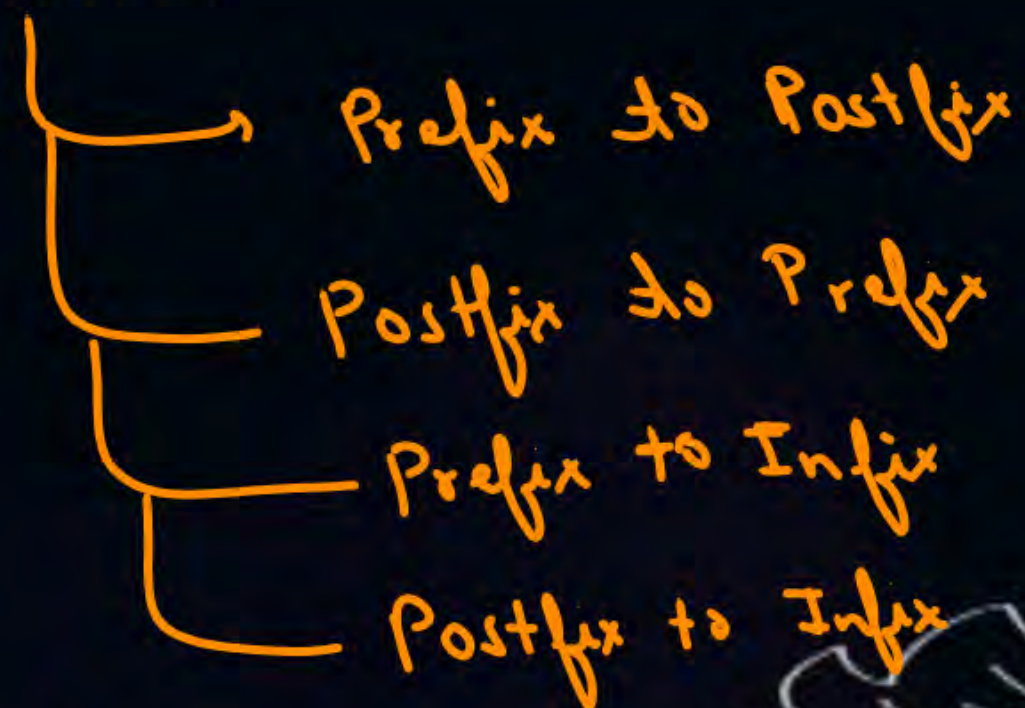 Prefix to Postfix
Postfix to Prefix
Prefix to Infix
Postfix to Infix